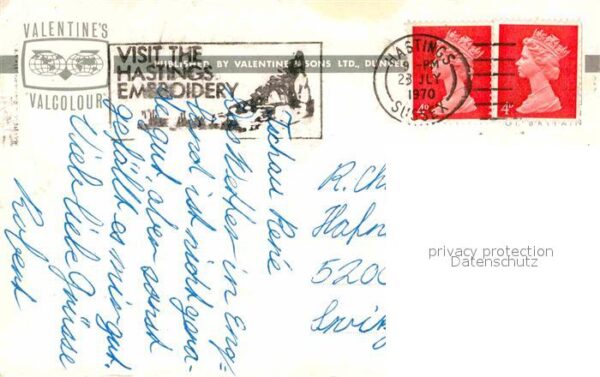 VALENTINE'S
VALCOLOUR
PUBLISHED BY VALENTINE & SONS LTD., DUNDEE
VISIT THE
HASTINGS
EMBROIDERY
HASTINGS
9-PM
23 JLY
1970
SUSSEX
4D
4D
Tschau René
Das Wetter in Eng-
land ist nicht gera-
de gut aber sonst
gefällt es mir gut.
Viele liebe Grüsse
Robert
R. Ch
Hahn
5200
privacy protection
Datenschutz